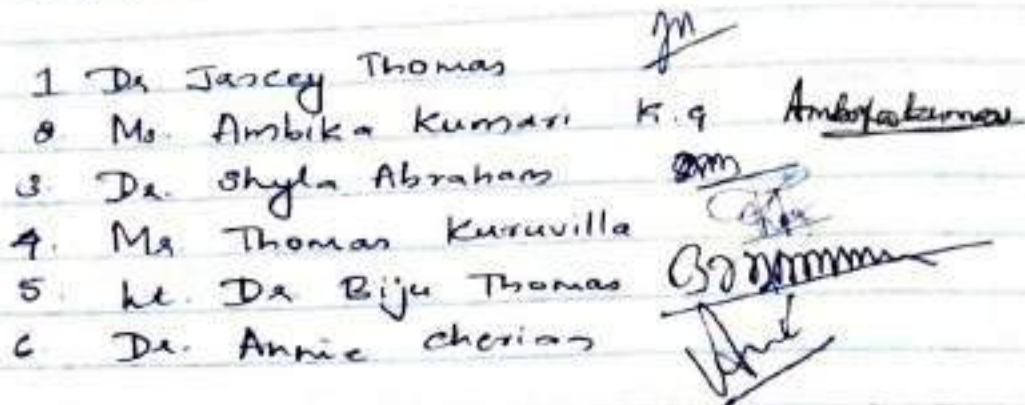 1 Dr Jancey Thomas
2 Ms. Ambika Kumari K.G Ambikakumari
3. Dr. Shyla Abraham
4. Mr Thomas Kuruvilla
5. Lt. Dr Biju Thomas
6 Dr. Annie Cherian